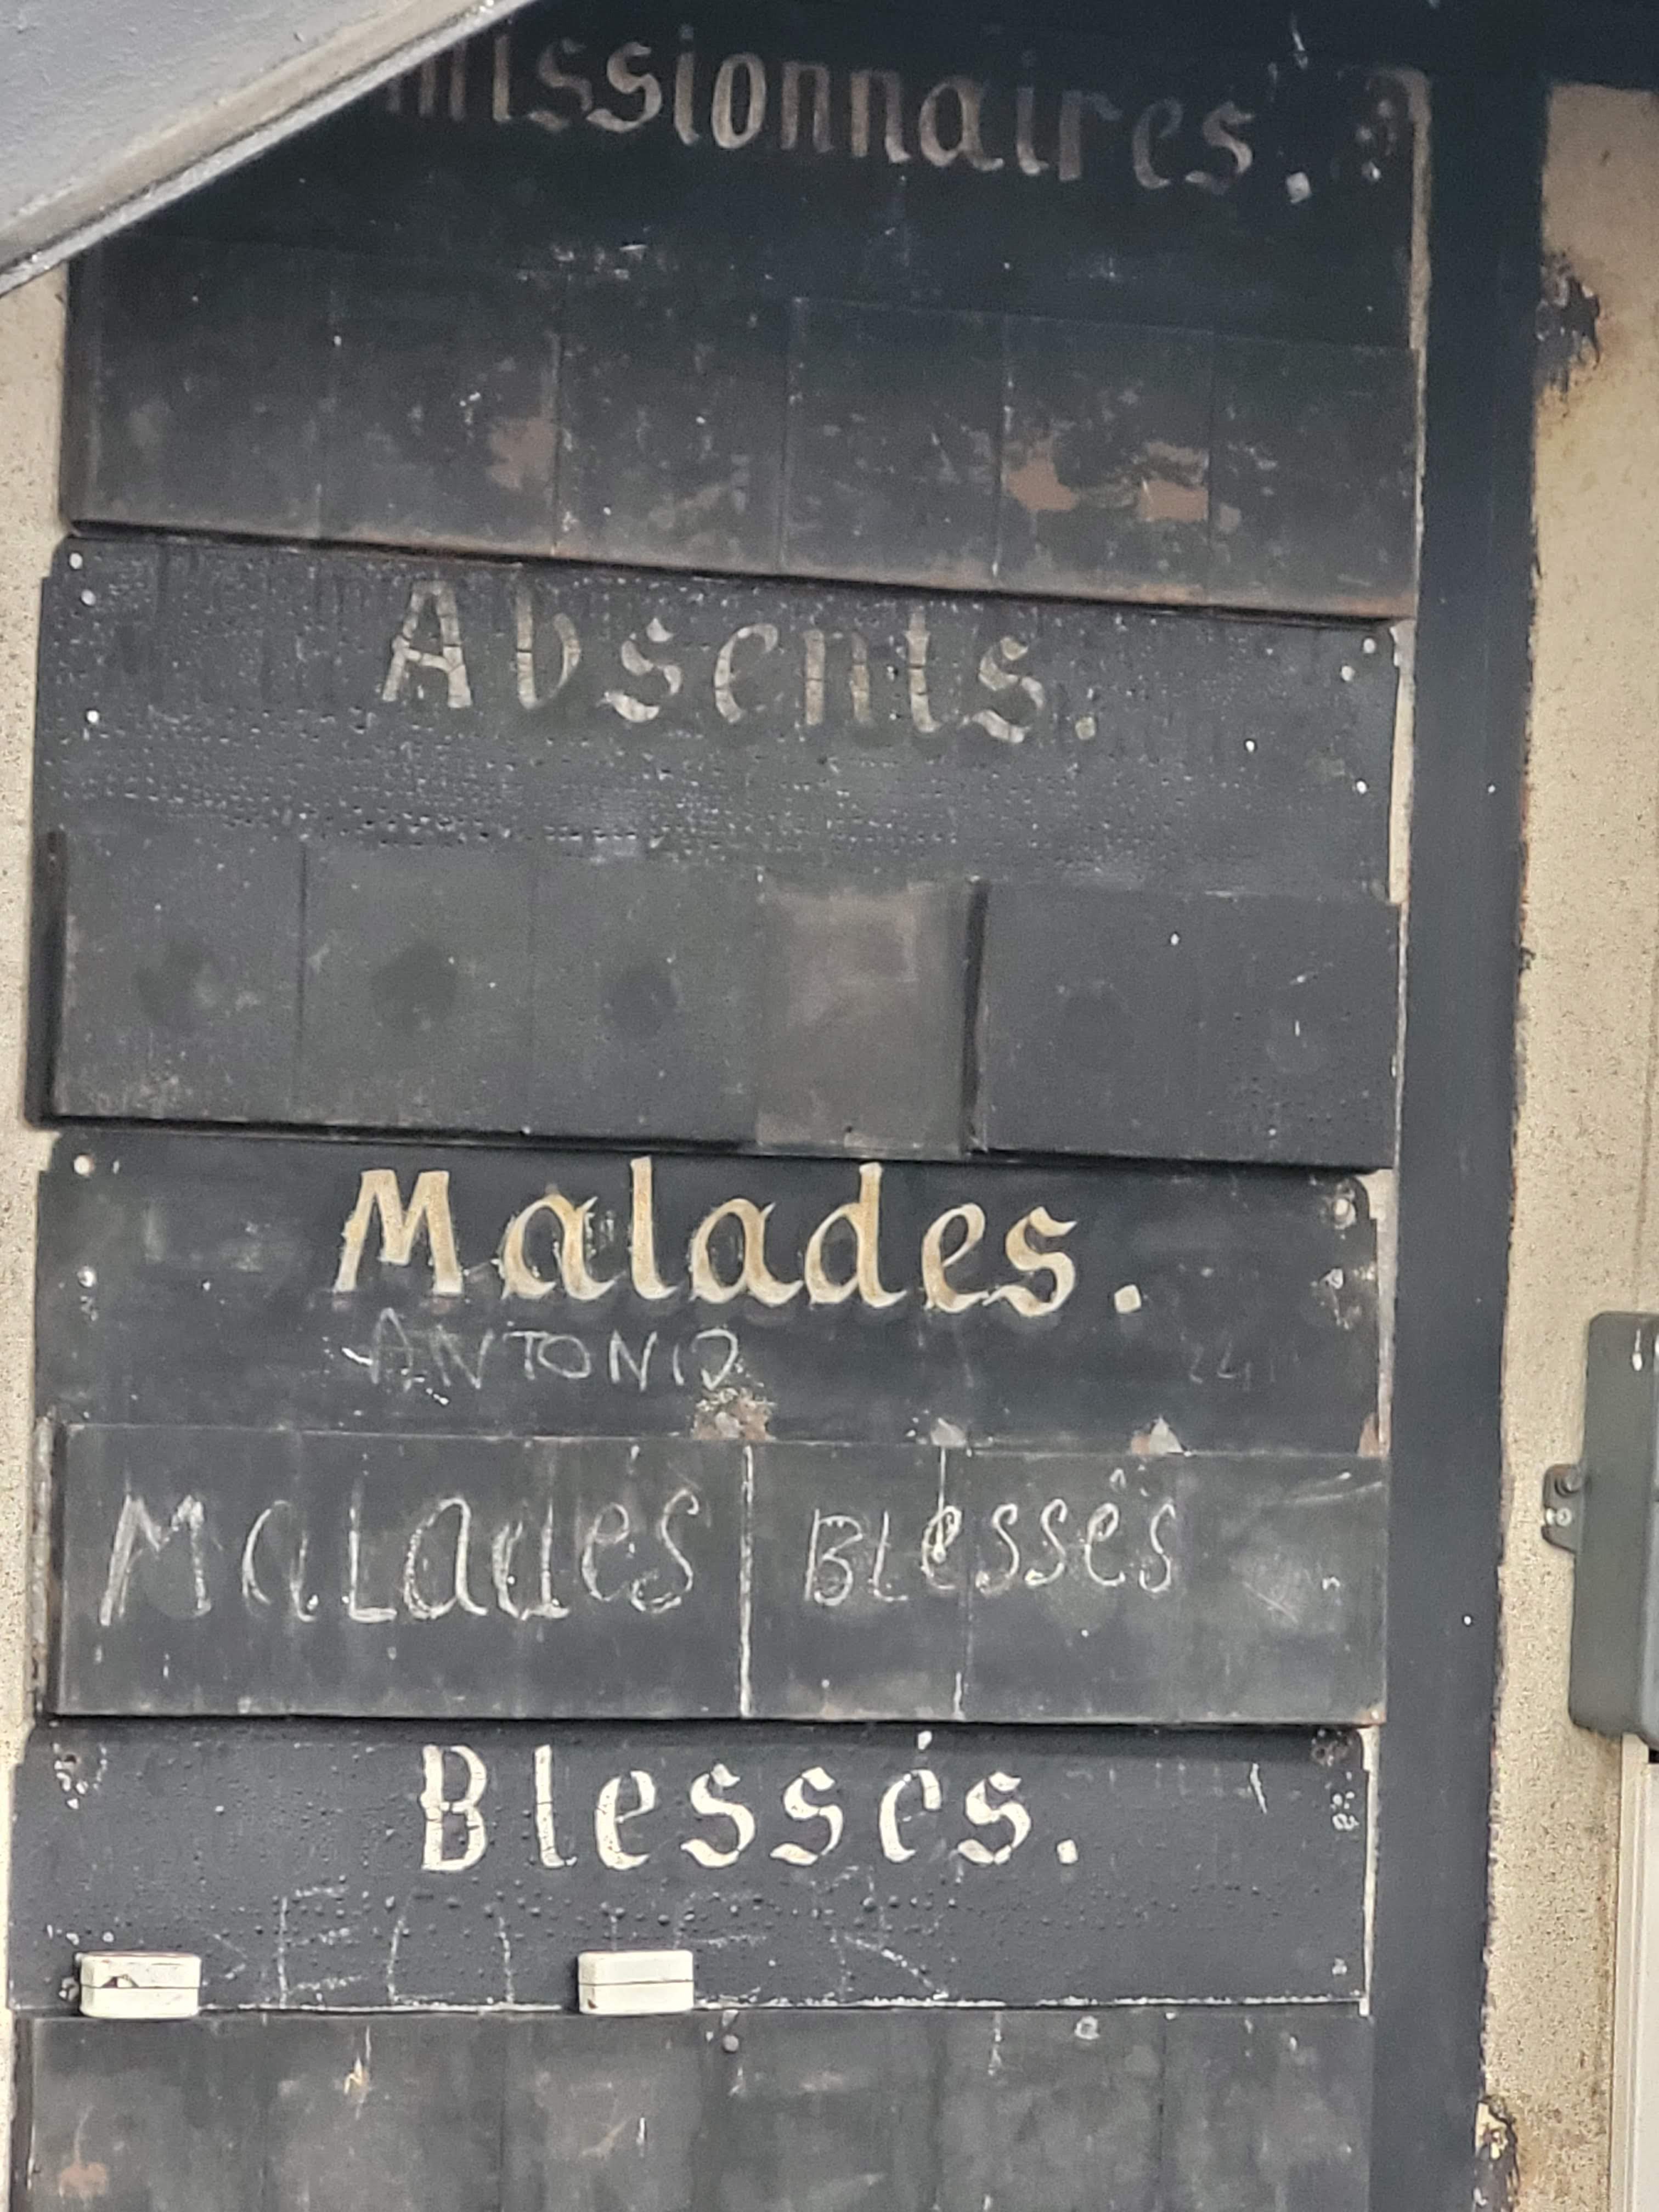 missionnaires.
Absents.
Malades.
ANTONIO
Malades Blessés
Blessés.